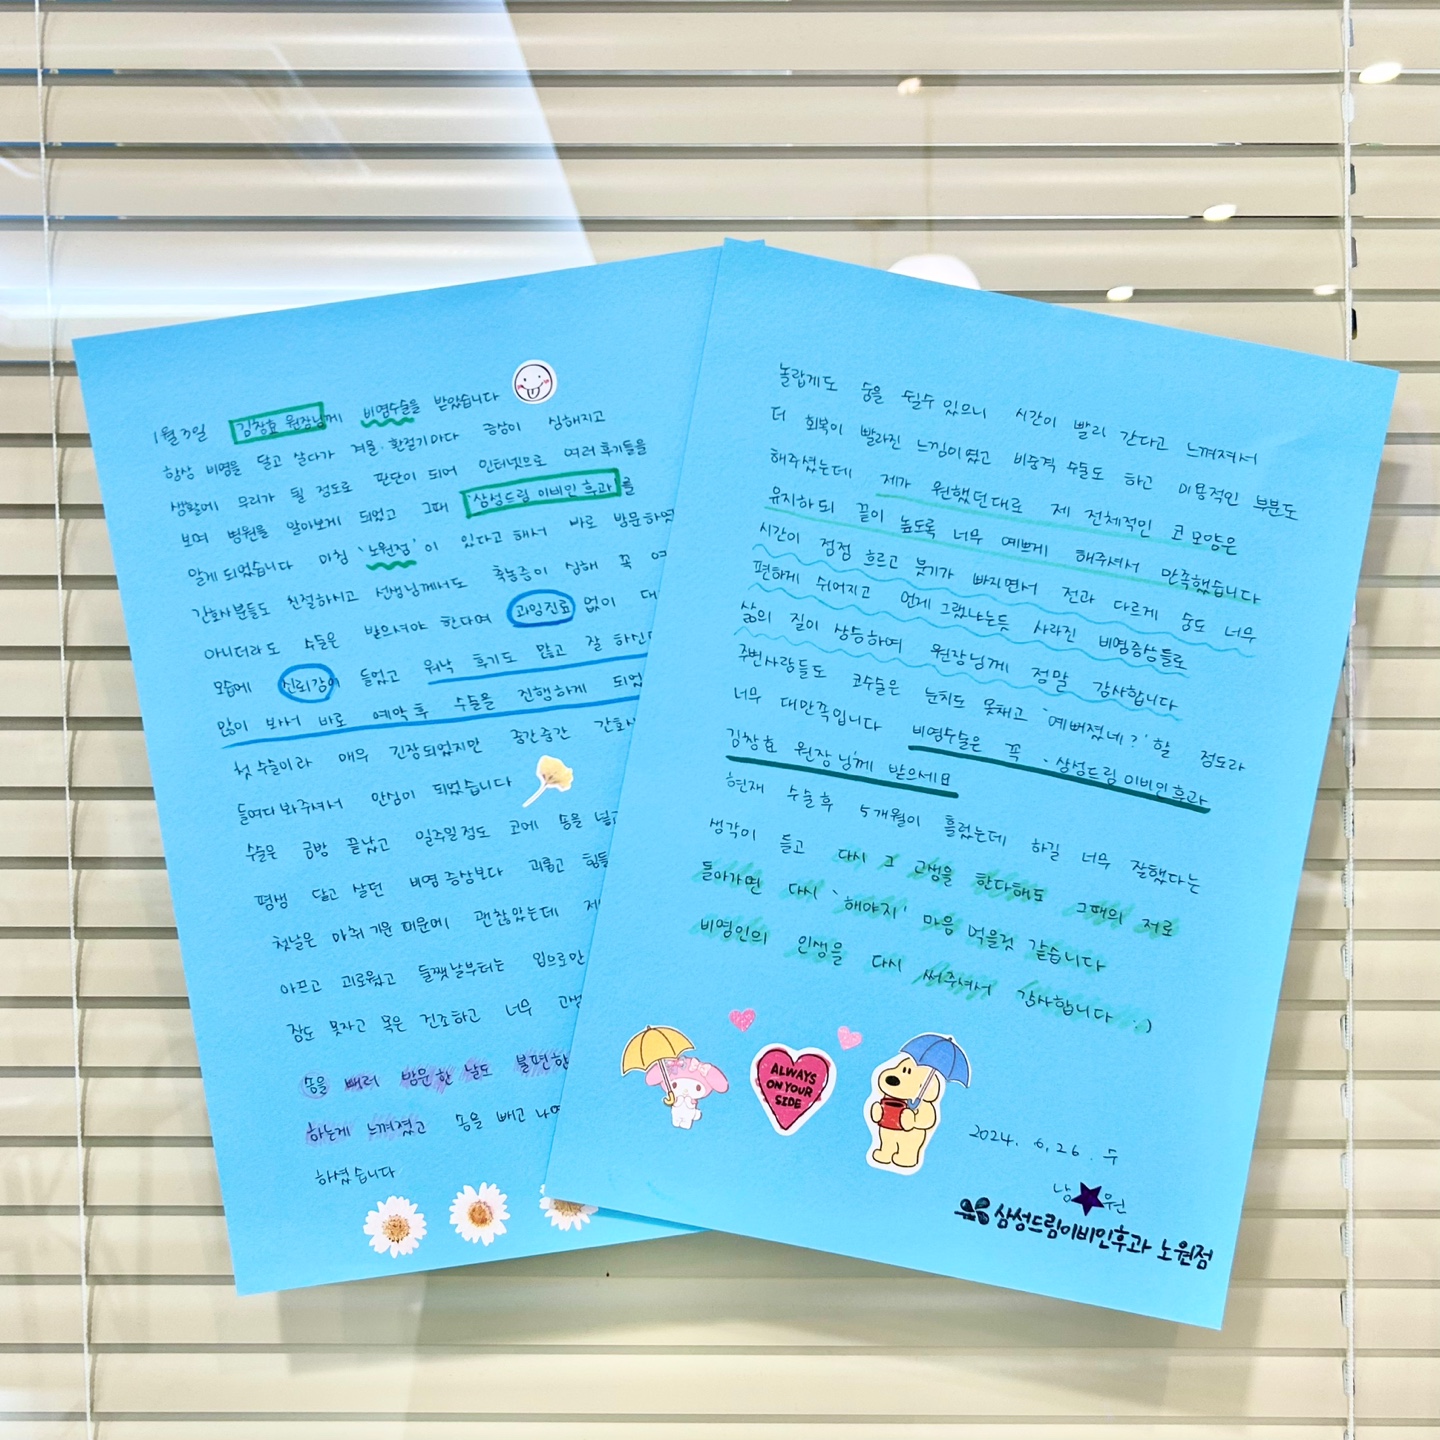 1월 3일 김창효 원장님께 비염수술을 받았습니다
항상 비염을 달고 살다가 겨울·환절기마다 증상이 심해지고
생활에 무리가 될 정도로 판단이 되어 인터넷으로 여러 후기들을
보며 병원을 알아보게 되었고 그때 '삼성드림 이비인후과'를
알게 되었습니다 마침 '노원점'이 있다고 해서 바로 방문하였
간호사분들도 친절하시고 선생님께서도 축농증이 심해 꼭 여
아니더라도 수술은 받으셔야 한다며 과잉진료 없이 대
모습에 신뢰감이 들었고 워낙 후기도 많고 잘 하신다
많이 봐서 바로 예약 후 수술을 진행하게 되었
첫 수술이라 매우 긴장되었지만 중간중간 간호사
들여다 봐주셔서 안심이 되었습니다
수술은 금방 끝났고 일주일정도 코에 솜을 넣고
평생 달고 살던 비염 증상보다 괴롭고 힘들
첫날은 마취 기운 때문에 괜찮았는데
아프고 괴로웠고 둘쨋날부터는 입으로만
잠도 못자고 목은 건조하고 너무 고생
솜을 빼러 방문한 날도 불편한
하는게 느껴졌고 솜을 빼고 나
하셨습니다
놀랍게도 숨을 쉴수 있으니 시간이 빨리 간다고 느껴져서
더 회복이 빨라진 느낌이였고 비중격 수술도 하고 미용적인 부분도
해주셨는데 제가 원했던대로 제 전체적인 코 모양은
유지하되 끝이 높도록 너무 예쁘게 해주셔서 만족했습니다
시간이 점점 흐르고 붓기가 빠지면서 전과 다르게 숨도 너무
편하게 쉬어지고 언제 그랬냐는듯 사라진 비염증상들로
삶의 질이 상승하여 원장님께 정말 감사합니다
주변사람들도 코수술은 눈치도 못채고 '예뻐졌네?' 할 정도라
너무 대만족입니다 비염수술은 꼭 삼성드림 이비인후과
김창효 원장님께 받으세요
현재 수술 후 5개월이 흘렀는데 하길 너무 잘했다는
생각이 들고 다시 그 고생을 한다해도 그때의 저로
돌아가면 다시 '해야지' 마음 먹을것 같습니다
비염인의 인생을 다시 써주셔서 감사합니다 :)
ALWAYS
ON YOUR
SIDE
2024. 6. 26. 수
원
삼성드림이비인후과 노원점